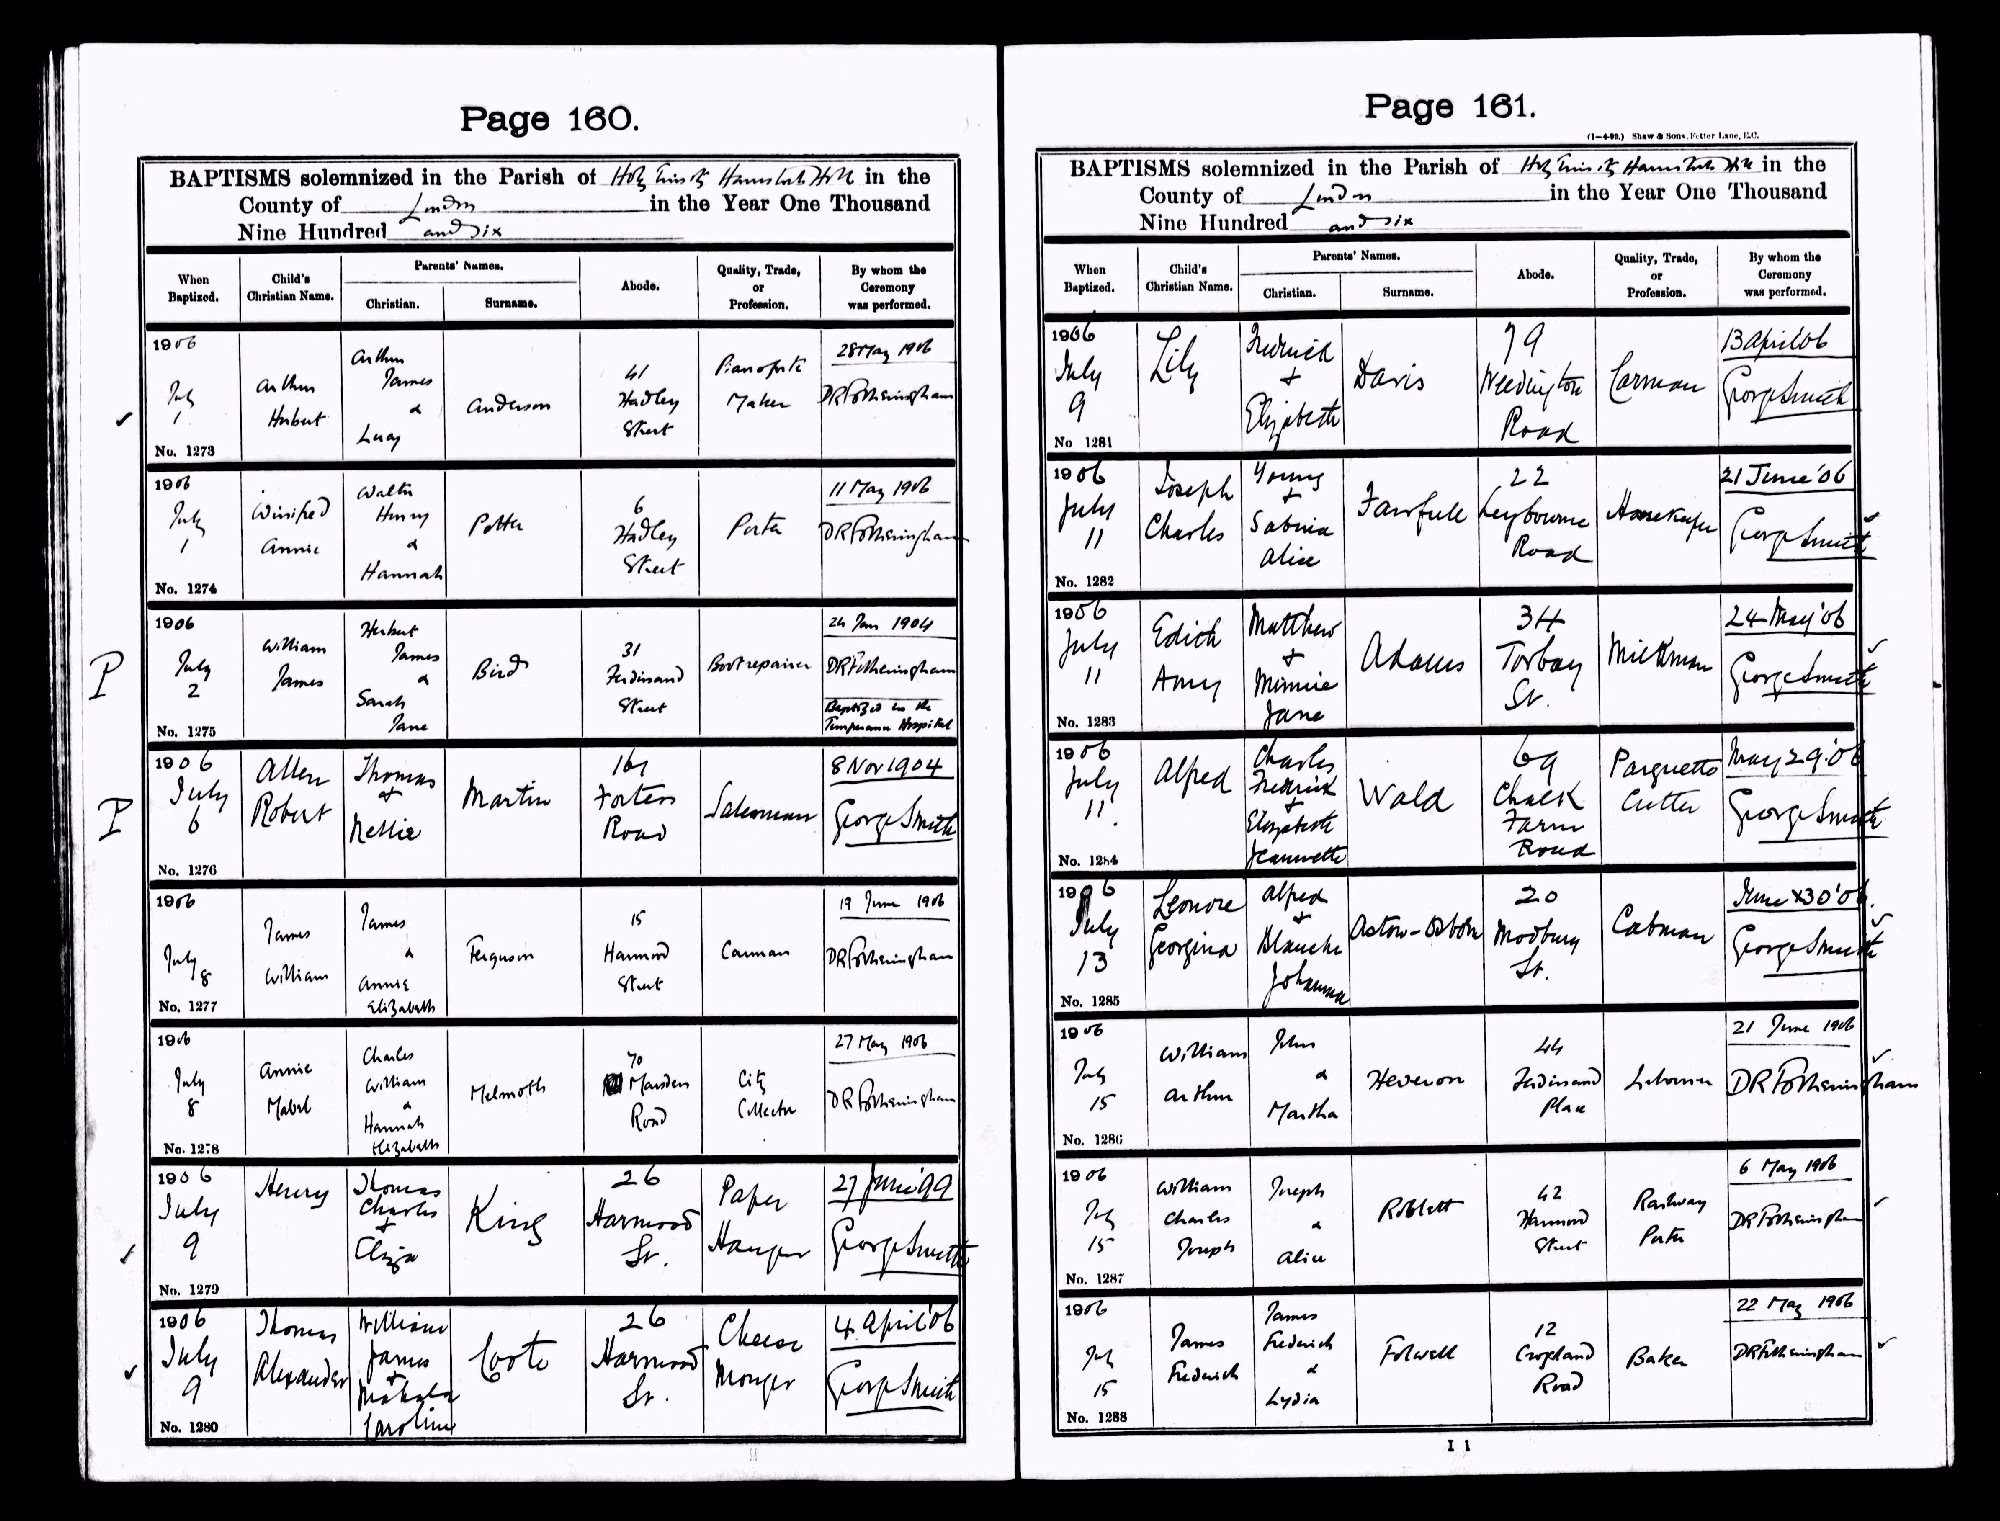 Page 160.
BAPTISMS solemnized in the Parish of Holy Trinity Haverstock Hill in the
County of London in the Year One Thousand
Nine Hundred and Six
When Baptized.
Child's Christian Name.
Parents' Names.
Christian.
Surname.
Abode.
Quality, Trade, or Profession.
By whom the Ceremony was performed.
1906
July
1
No. 1273
Arthur
Herbert
Arthur
James
&
Lucy
Anderson
41
Hadley
Street
Pianoforte
Maker
28 May 1906
DR Fotheringham
1906
July
1
No. 1274
Winifred
Annie
Walter
Henry
&
Hannah
Potter
6
Hadley
Street
Porter
11 May 1906
DR Fotheringham
P
1906
July
2
No. 1275
William
James
Herbert
James
&
Sarah
Jane
Bird
31
Ferdinand
Street
Bootrepairer
24 Jan 1904
DR Fotheringham
Baptized in the
Temperance Hospital
P
1906
July
6
No. 1276
Allen
Robert
Thomas
+
Nellie
Martin
Road
Salesman
8 Nov 1904
George Smith
1906
July
8
No. 1277
James
William
James
&
Annie
Elizabeth
Ferguson
15
Harmood
Street
Carman
19 June 1906
DR Fotheringham
1906
July
8
No. 1278
Annie
Mabel
Charles
William
&
Hannah
Elizabeth
Melmoth
70
Marsden
Road
City
Collector
27 May 1906
DR Fotheringham
1906
July
9
No. 1279
Henry
Thomas
Charles
+
Eliza
King
26
Harmood
St.
Paper
Hanger
27 June '99
George Smith
1906
July
9
No. 1280
Thomas
Alexander
William
James
+
Caroline
Coote
26
Harmood
St.
Cheese
Monger
4 April '06
George Smith
Page 161.
(1—4-99.) Shaw & Sons, Fetter Lane, E.C.
BAPTISMS solemnized in the Parish of Holy Trinity Haverstock Hill in the
County of London in the Year One Thousand
Nine Hundred and Six
When Baptized.
Child's Christian Name.
Parents' Names.
Christian.
Surname.
Abode.
Quality, Trade, or Profession.
By whom the Ceremony was performed.
1906
July
9
No 1281
Lily
Frederick
+
Elizabeth
Davis
79
Weedington
Road
Carman
13 April '06
George Smith
1906
July
11
No. 1282
Joseph
Charles
Young
+
Sabina
Alice
Fairfull
22
Leybourne
Road
Housekeeper
21 June '06
George Smith
1906
July
11
No. 1283
Edith
Amy
Matthew
+
Minnie
Jane
Adams
34
Torbay
St.
Milkman
24 May '06
George Smith
1906
July
11.
No. 1284
Alfred
Charles
Frederick
+
Elizabeth
Jeannette
Wald
69
Chalk
Farm
Road
Parquette
Cutter
May 29 '06
George Smith
1906
July
13
No. 1285
Leonore
Georgina
Alfred
+
Blanche
Johanna
Aston-Osborn
20
Modbury
St.
Cabman
June 30 '06.
George Smith
1906
July
15
No. 1286
William
Arthur
John
&
Martha
Heveron
44
Ferdinand
Place
Labourer
21 June 1906
DR Fotheringham
1906
July
15
No. 1287
William
Charles
Joseph
Joseph
&
Alice
Roblett
42
Harmood
Street
Railway
Porter
6 May 1906
DR Fotheringham
1906
July
15
No. 1288
James
Frederick
James
Frederick
&
Lydia
Folwell
12
Cropland
Road
Baker
22 May 1906
DR Fotheringham
I 1